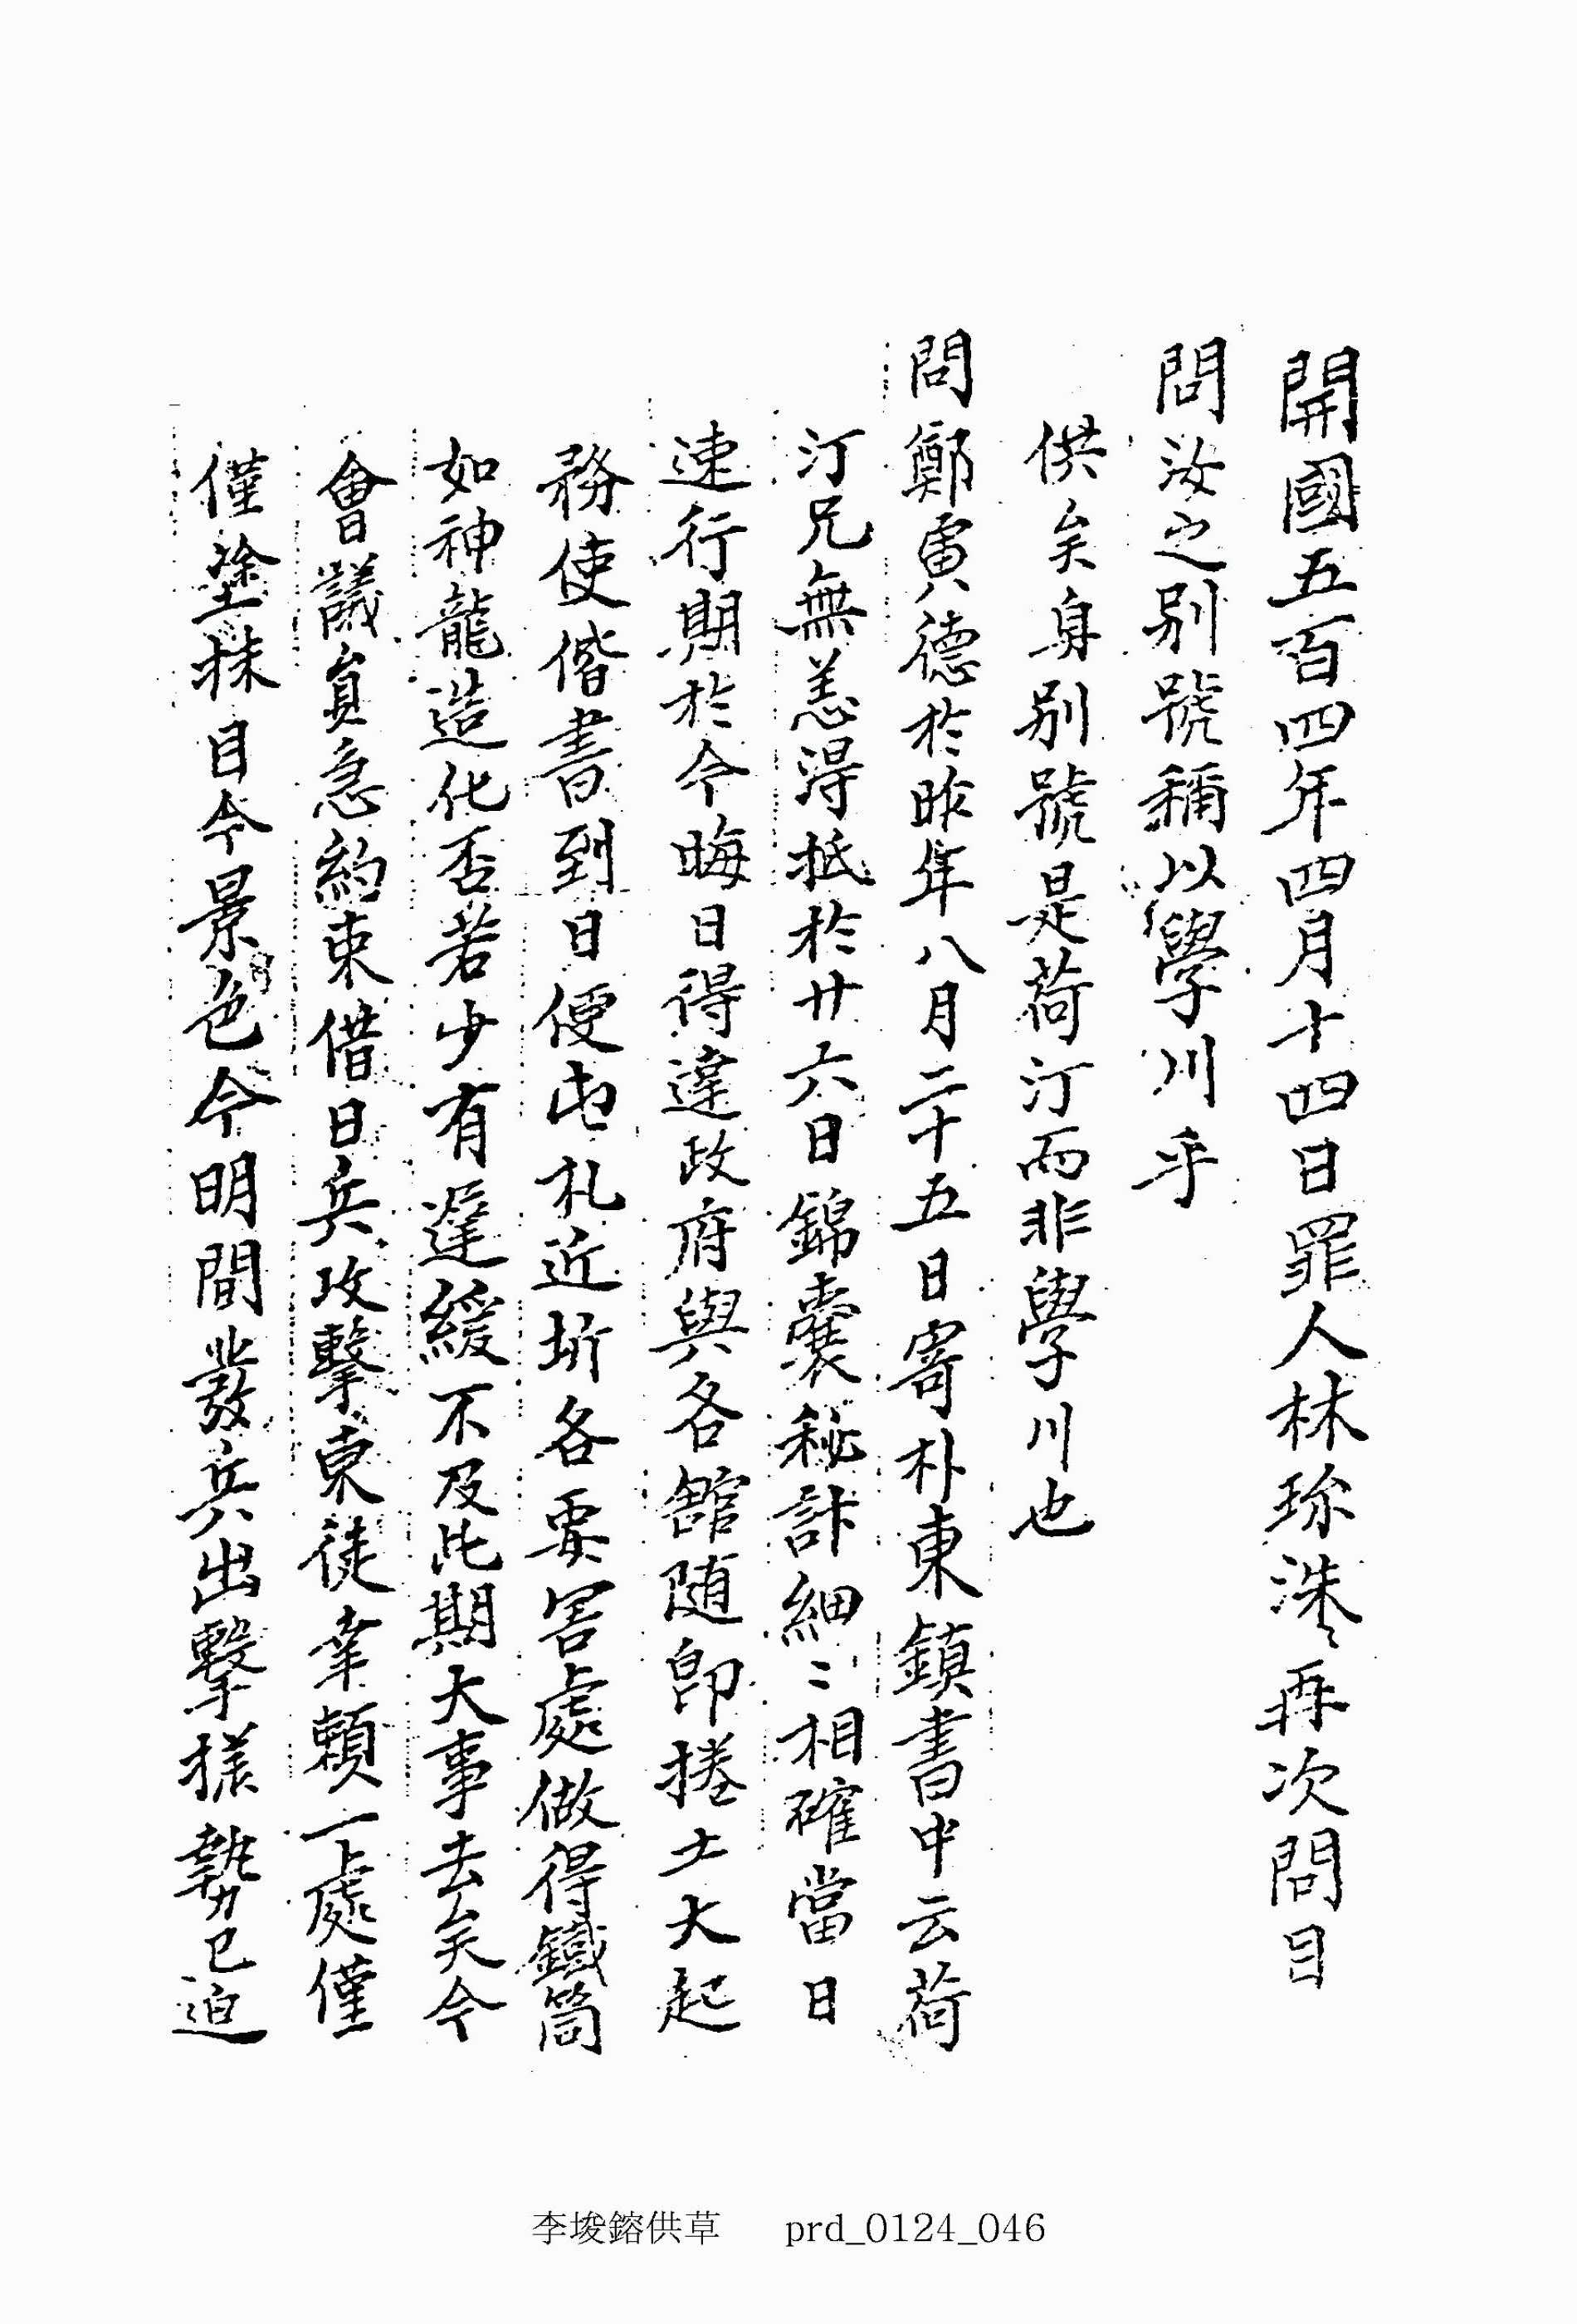 開國五百四年四月十四日罪人林珎洙再次問目
問汝之別號稱以學川乎
供矣身別號是荷汀而非學川也
問鄭寅德於昨年八月二十五日寄朴東鎮書中云荷
汀兄無恙得抵於廿六日錦囊秘計細〻相確當日
速行期於今晦日得達政府與各舘随即捲土大起
務使偕書到日便屯札近圻各要害處做得鐵筒
如神龍造化否若少有遲緩不及此期大事去矣今
會議員急約束借日兵攻擊東徒幸賴一處僅
僅塗抹目今景色今明間發兵出擊樣勢已迫
李埈鎔供草 prd_0124_046